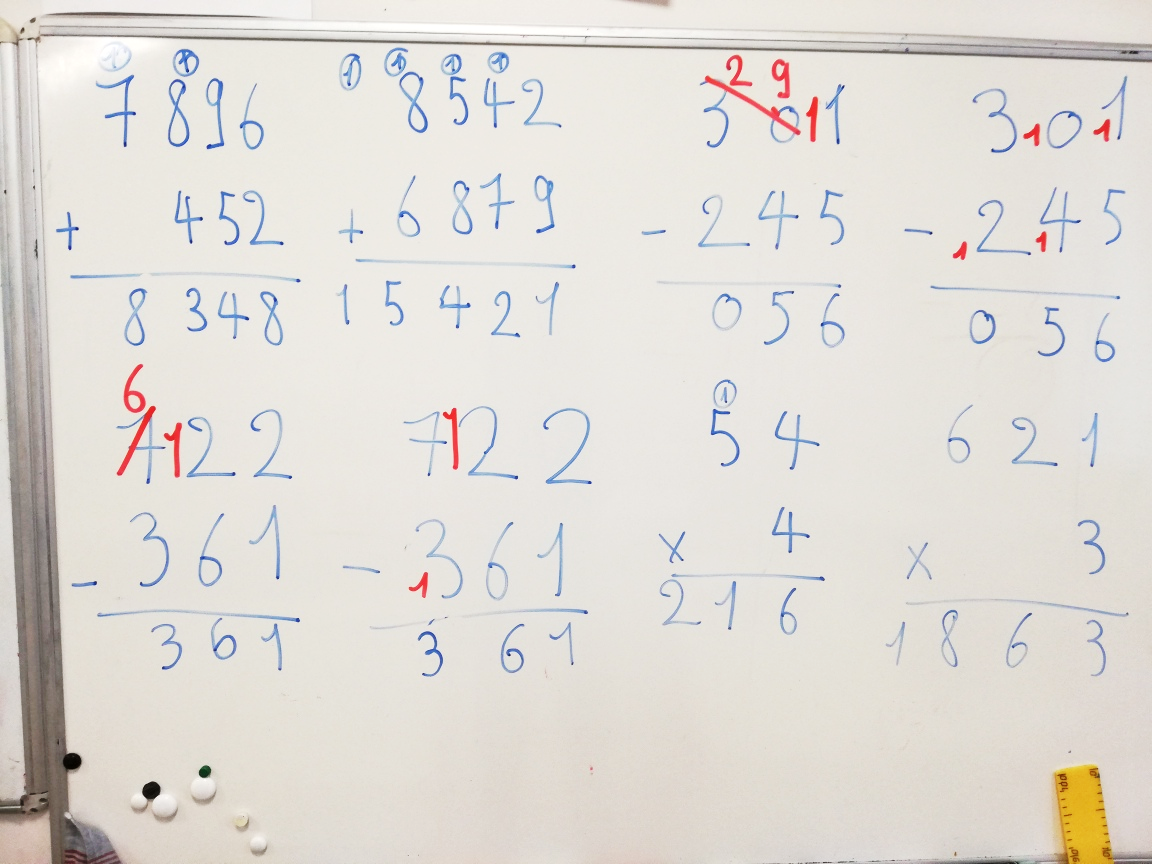 1 1
7 8 9 6
+ 4 5 2
8 3 4 8
1 1 1 1
8 5 4 2
+ 6 8 7 9
1 5 4 2 1
2 9
3 0 1 1
- 2 4 5
0 5 6
3 1 0 1 1
- 1 2 1 4 5
0 5 6
6
7 1 2 2
- 3 6 1
3 6 1
7 1 2 2
- 1 3 6 1
3 6 1
1
5 4
x 4
2 1 6
6 2 1
x 3
1 8 6 3